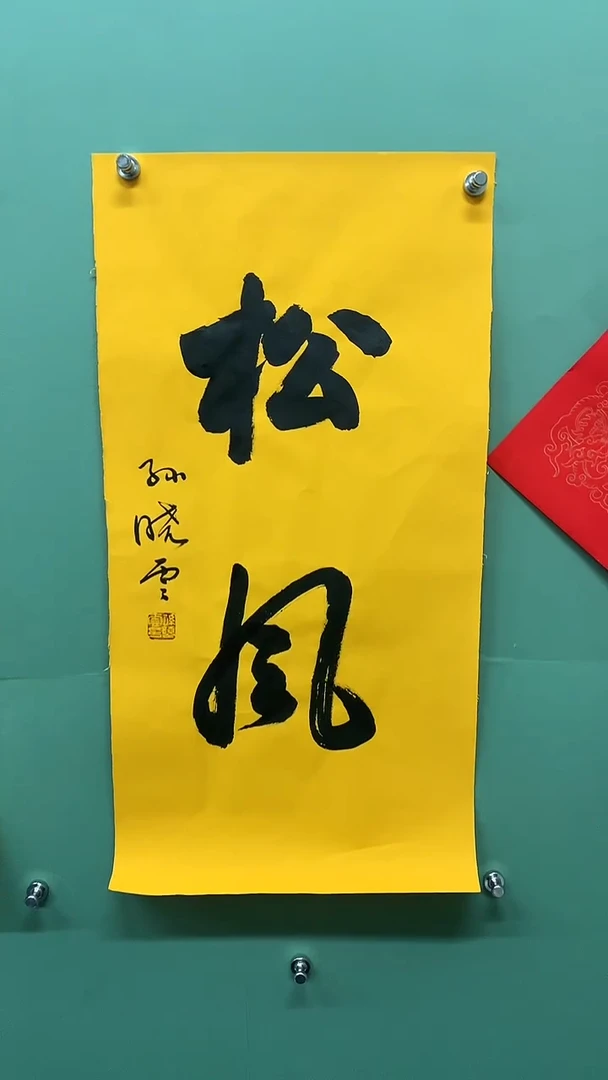 松风
孙晓云